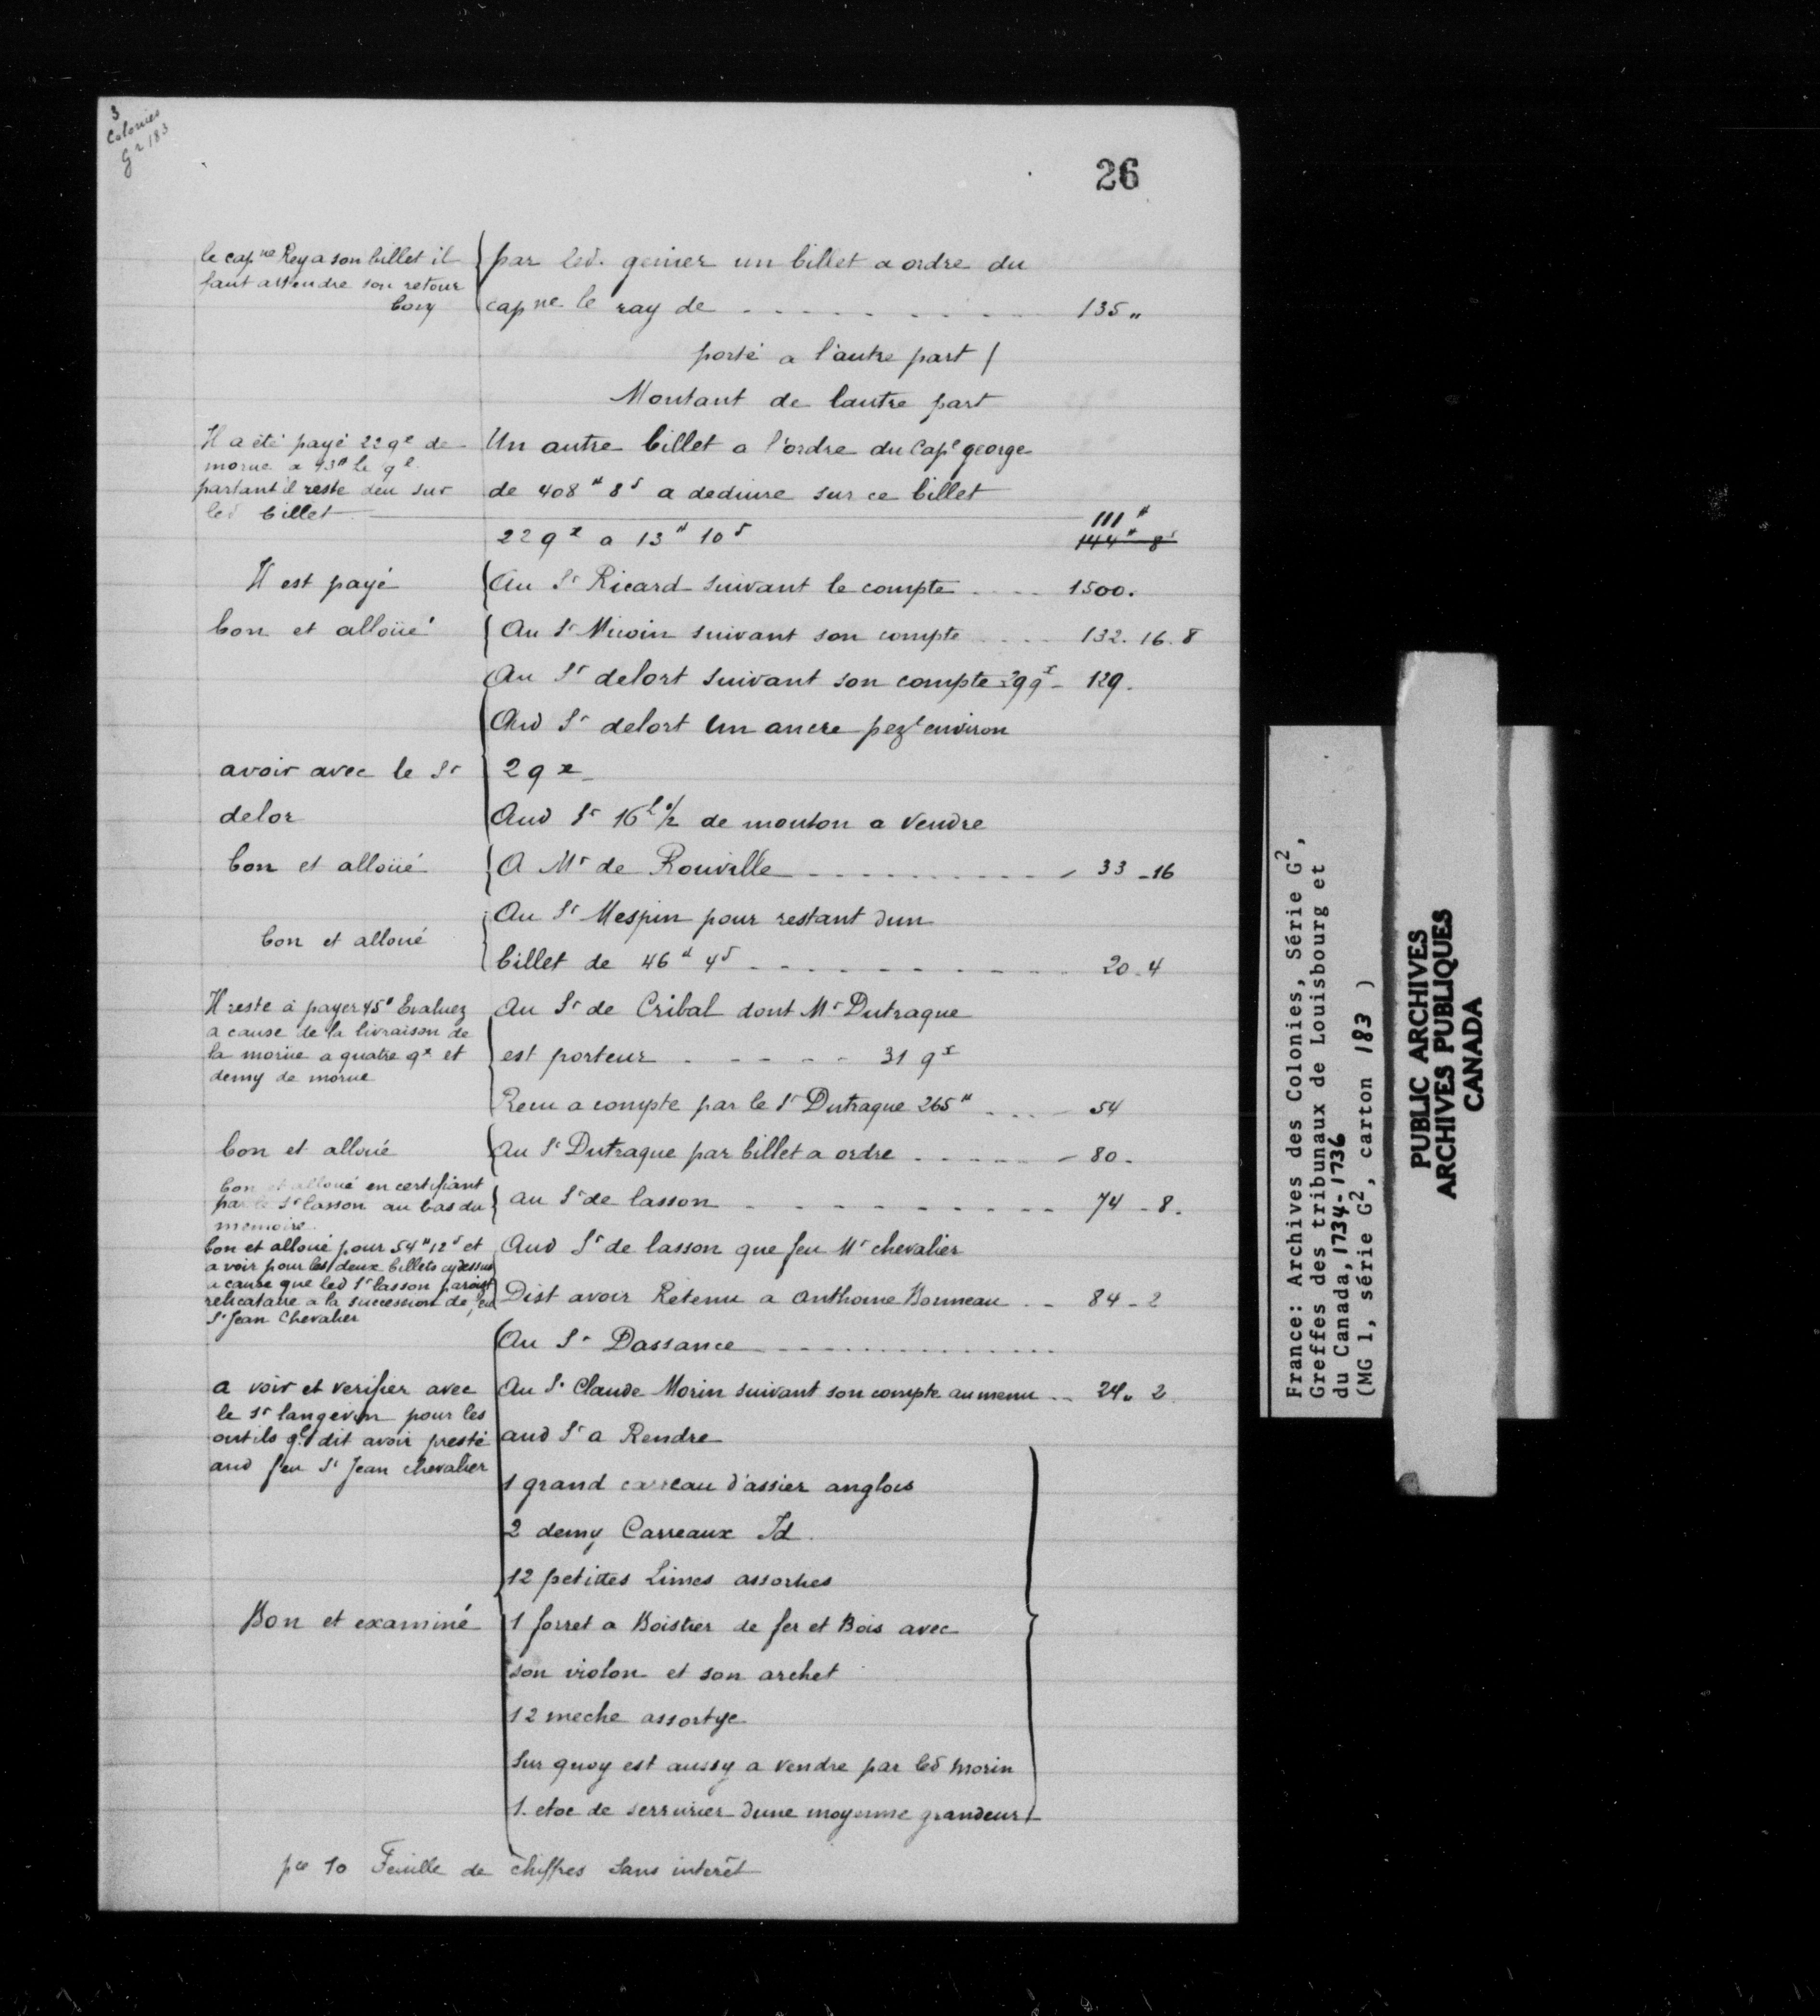 3
Colonies
G2 183
26
le capne Rey a son billet il
faut attendre son retour
bony
par led. genier un billet a ordre du
capne le ray de 135 "
porté a l'autre part /
Montant de lautre part
Il a été payé 22 qx de
morue a 13# le ql
partant il reste deu sur
led billet
Un autre billet a l'ordre du Capt george
de 408# 8s a deduire sur ce billet
22 qx a 13# 10s
111#
144# 8s
Il est payé
Au Sr Ricard suivant le compte 1500.
bon et alloüé
Au Sr Micoin suivant son compte 132. 16. 8
Au Sr delort suivant son compte 29 qx 129.
Aud Sr delort Un ancre pezt environ
avoir avec le Sr
delor
2 qx
Aud Sr 16 l 1/2 de mouton a Vendre
bon et alloüé
A Mr de Rouville 33 - 16
bon et alloué
Au Sr Mespin pour restant dun
billet de 46# 4s 20 - 4
Il reste à payer 45# Evaluez
a cause de la livraison de
la morüe a quatre qx et
demy de morue
Au Sr de Cribal dont Mr Dutraque
est porteur 31 qx
Recu a compte par le Sr Dutraque 265# 54
bon et alloué
Au Sr Dutraque par billet a ordre 80.
bon et alloué en certifiant
par le Sr lasson au bas du
memoire
au Sr de lasson 74 - 8.
bon et alloué pour 54# 12s et
a voir pour les deux billets cydessus
a cause que led Sr lasson paroist
relicataire a la succession de feu
Sr Jean Chevalier
Aud Sr de lasson que feu Mr chevalier
Dist avoir Retenu a Anthoine Bonneau 84 - 2
Au Sr Dassance
a voir et verifier avec
le Sr langevin pour les
outils ql dit avoir presté
aud feu Sr Jean chevalier
Au Sr Claude Morin suivant son compte au menu 24 " 2
aud Sr a Rendre
1 grand carreau d'assier anglois
2 demy Carreaux Id.
12 petittes Limes assorties
Bon et examiné
1 forret a Boistier de fer et Bois avec
son violon et son archet
12 meche assortye
Sur quoy est aussy a vendre par led Morin
1. etoc de serrurier dune moyenne grandeur
pce 10 Feuille de chiffres sans interêt
France: Archives des Colonies, Série G2,
Greffes des tribunaux de Louisbourg et
du Canada, 1734-1736
(MG 1, série G2, carton 183 )
PUBLIC ARCHIVES
ARCHIVES PUBLIQUES
CANADA